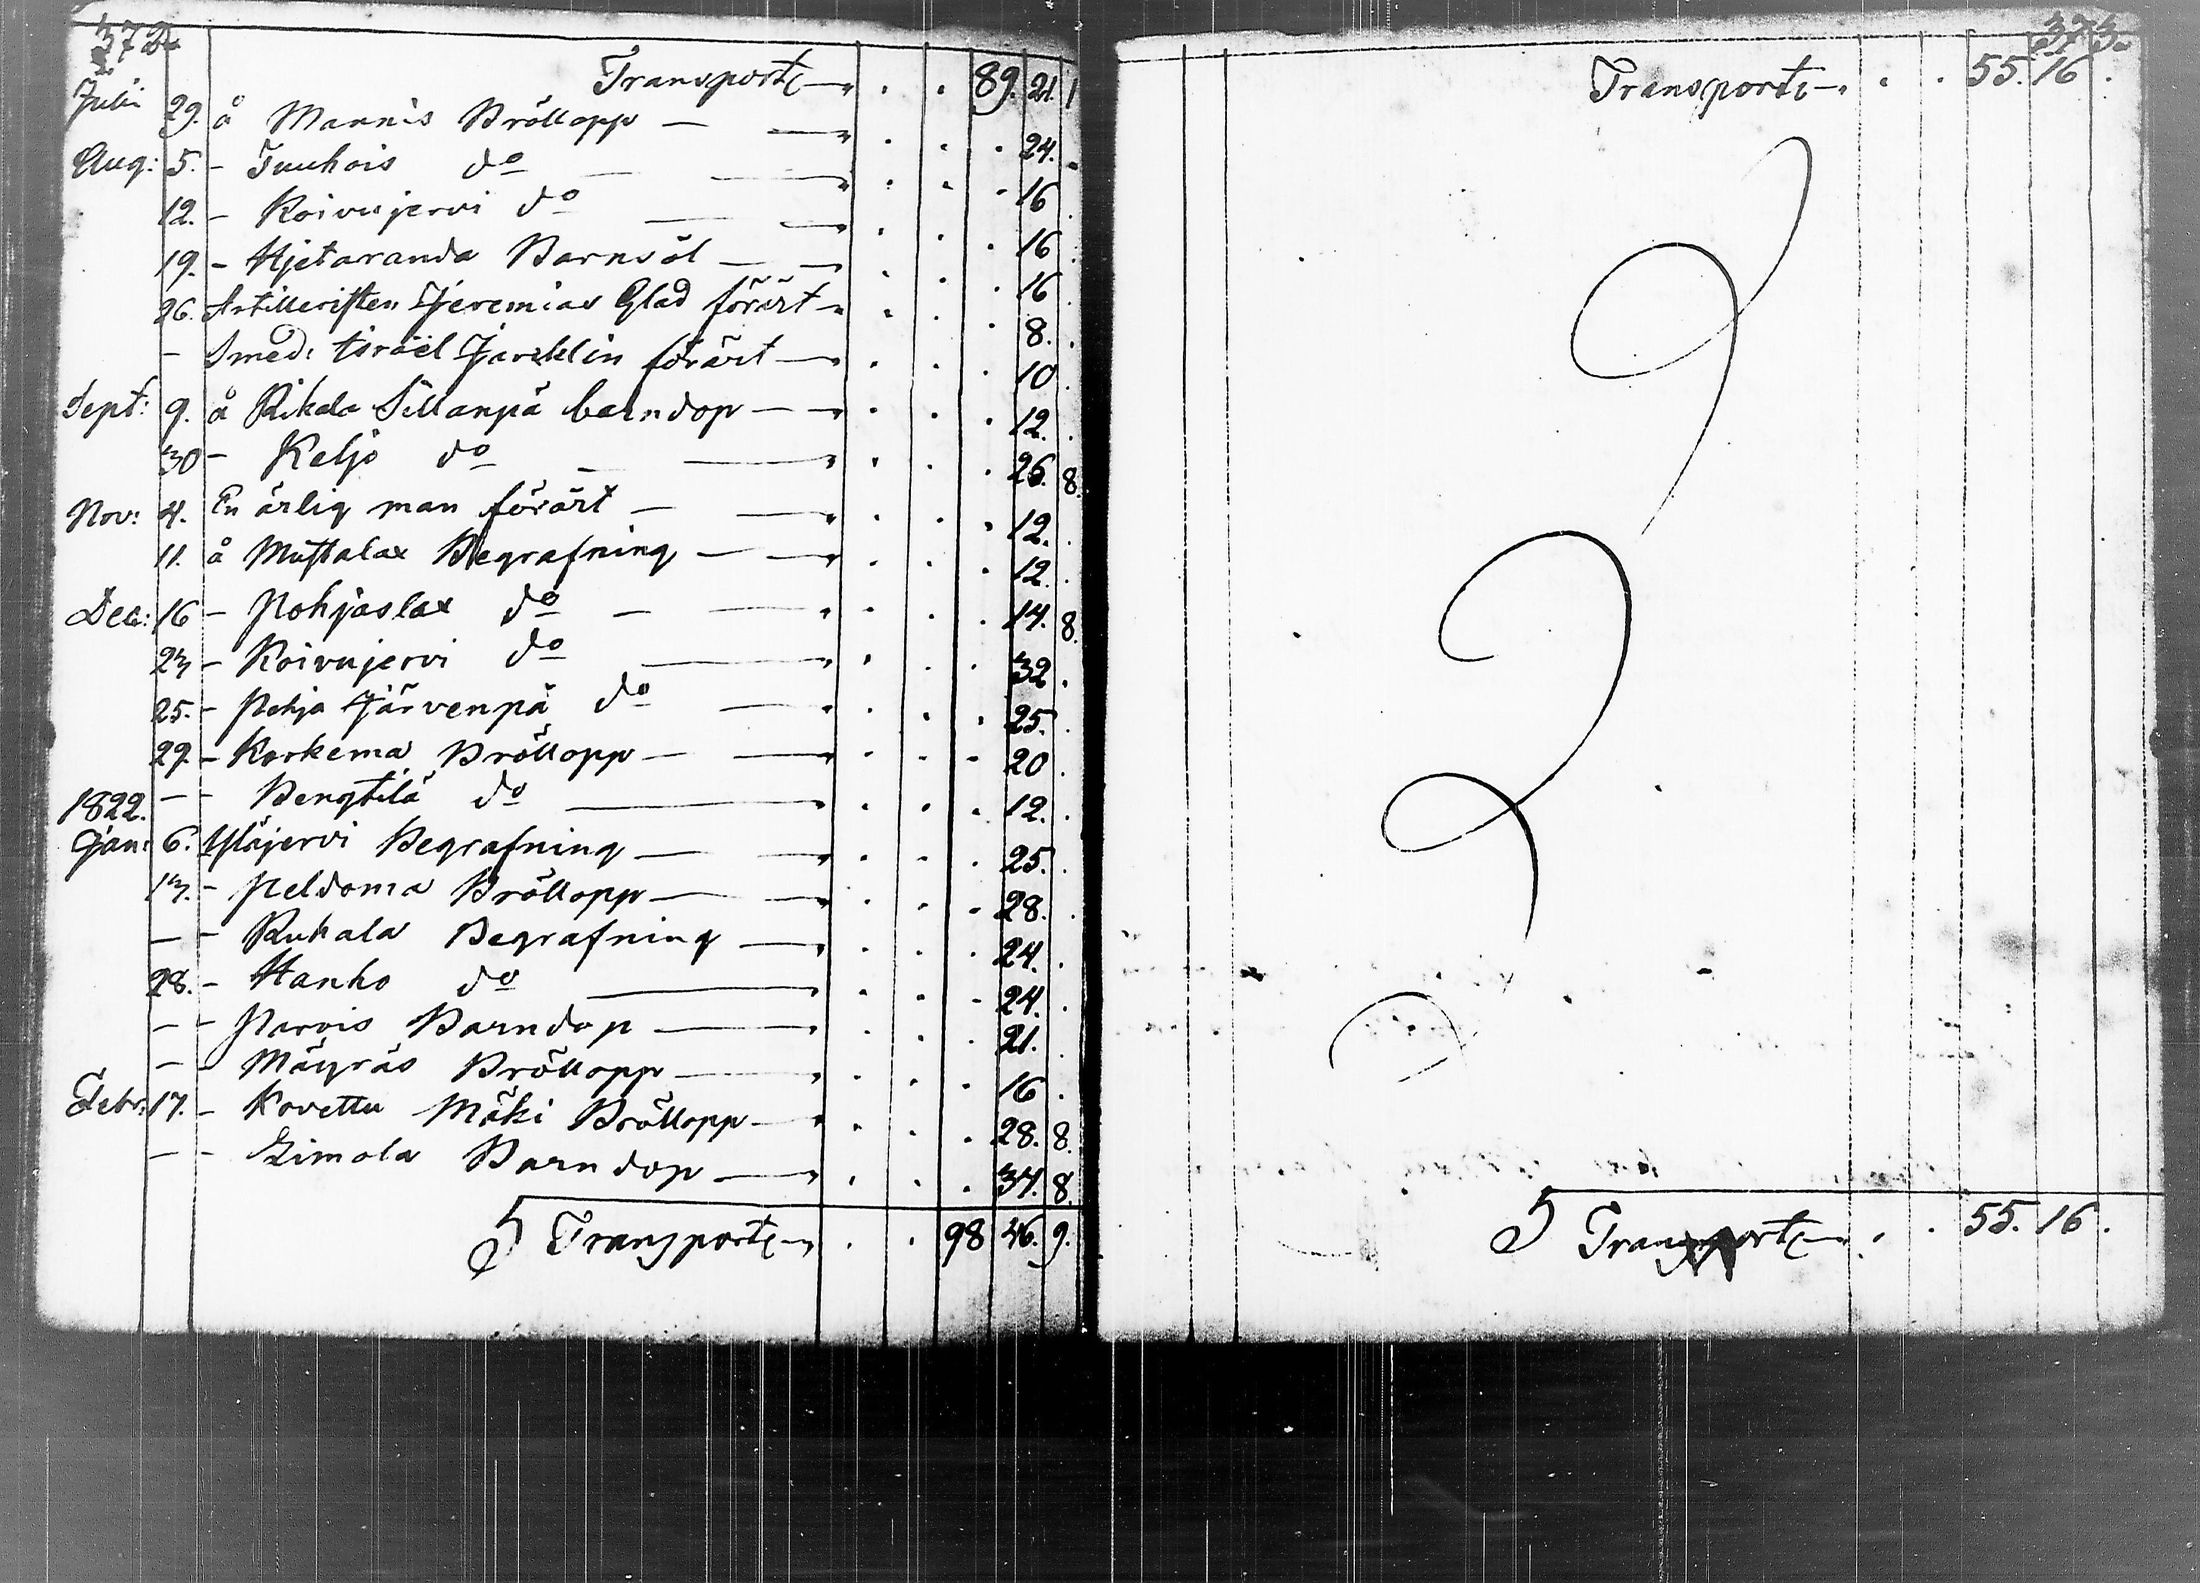 372.
Transport 89. 21. 1
Julii 29. å Mannis Bröllopp 24.
Aug: 5. - Tuuhois do 16
12. - Koivujervi do 16
19. - Hjetaranda Barnsöl 16
26. Artilleristen Jeremias Glad förärt 8.
- Smed: Israel Jarcklin förärt 10
Sept: 9. å Rikala Sillanpä barndop 12.
30 - Keljo do 26. 8.
Nov: 4. En ärlig man förärt 12.
11. å Mustalax Begrafning 12.
Dec: 16 - Pohjaslax do 14. 8.
23 - Koivujervi do 32.
25. - Pohja Järvenpä do 25.
29. - Korkema Bröllopp 20
- - Bengtilä do 12.
1822.
Jan: 6. Yläjervi Begrafning 25.
13. - Peldoma Bröllopp 28.
- - Ruhala Begrafning 24.
28. - Hanho do 24.
- - Parvis Barndop 21.
- - Mäyräs Bröllopp 16
Febr: 17. - Kovettu Mäki Bröllopp 28. 8.
- - Limola Barndop 34. 8.
Transport 98 46. 9.
373.
Transport 55. 16.
Transport 55. 16.